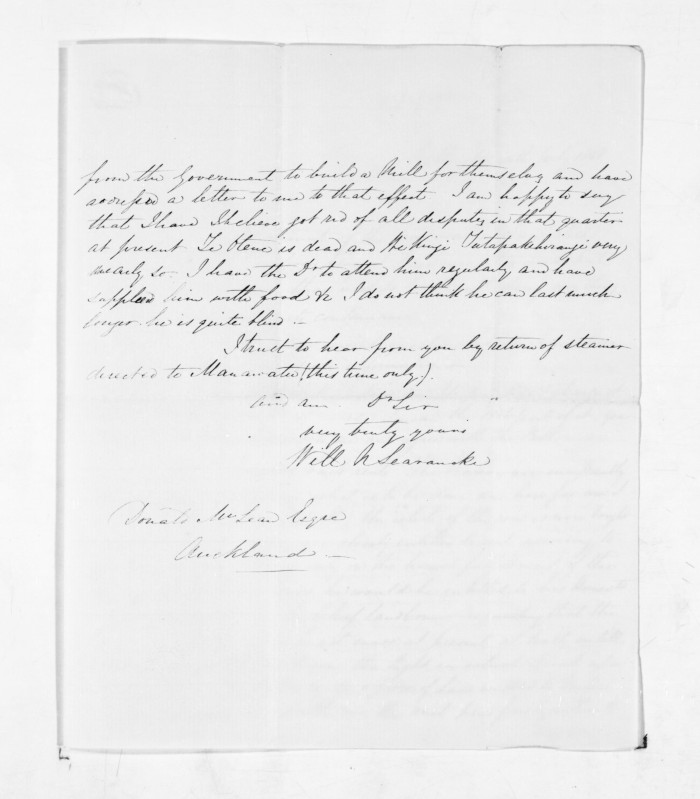 from the Government to build a Mill for themselves and have
addressed a letter to me to that effect I am happy to say
that I have I believe got rid of all disputes in that quarter
at present Te Otene is dead and He Kingi Tutapakihirangi very
nearly so. I have the Dr to attend him regularly and have
supplied him with food &c I do not think he can last much
longer he is quite blind —
I trust to hear from you by return of steamer
directed to Manawatu (this time only).
and am Dr Sir
very truly yours
Will N Searancke
Donald McLean Esqre
Auckland —